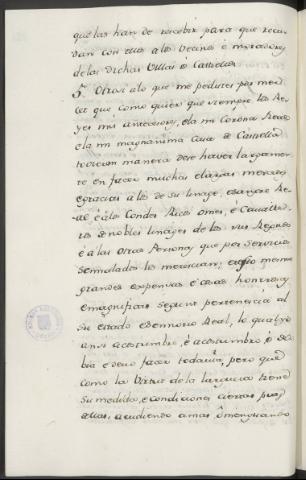 que las han de recebir para que recu
dan con ellas a los Vecinos e moradores
de las dichas Villas e Castillos
5. Otrosi a lo que me pedistes por mer
cet que como quier que siempre los Re
yes mis antecesores, e la mi Corona Real
e la mi magnanima Casa de Castilla
tovieron manera de se haver largamen
te en facer muchas e largas mercedes
e gracias a los de su linage, e sangre Re
al e a los Condes Ricos omes, e Cavalle
ros de nobles linages de los sus Regnos
e a las otras Personas que por servicios
señalados los merecian, e
grandes expensas e cosas honrrosas
e magnificas segunt pertenescia al
su estado e Señorio Real, lo qual yo
ansi acostumbre, e acostumbro e de
bia e devo facer todavia, pero que
como la Virtut de la largueza tiene
su medida, e condiciones ciertas para
ellas, acudiendo a mas o menguando